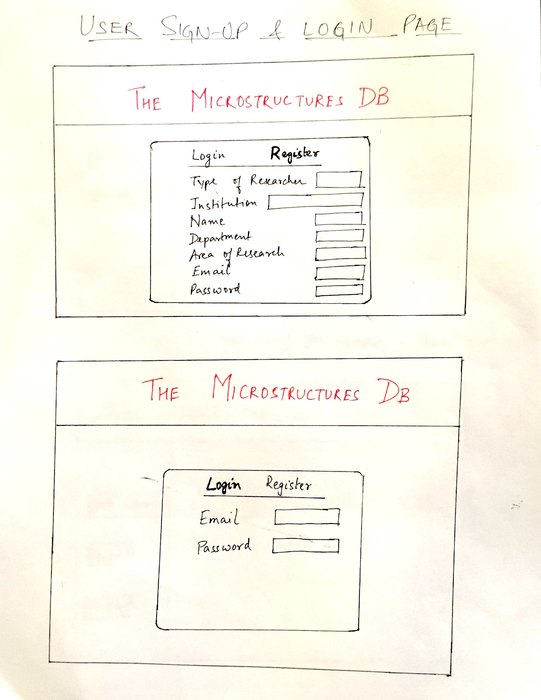 USER SIGN-UP & LOGIN PAGE
THE MICROSTRUCTURES DB
Login Register
Type of Researcher
Institution
Name
Department
Area of Research
Email
Password
THE MICROSTRUCTURES DB
Login Register
Email
Password